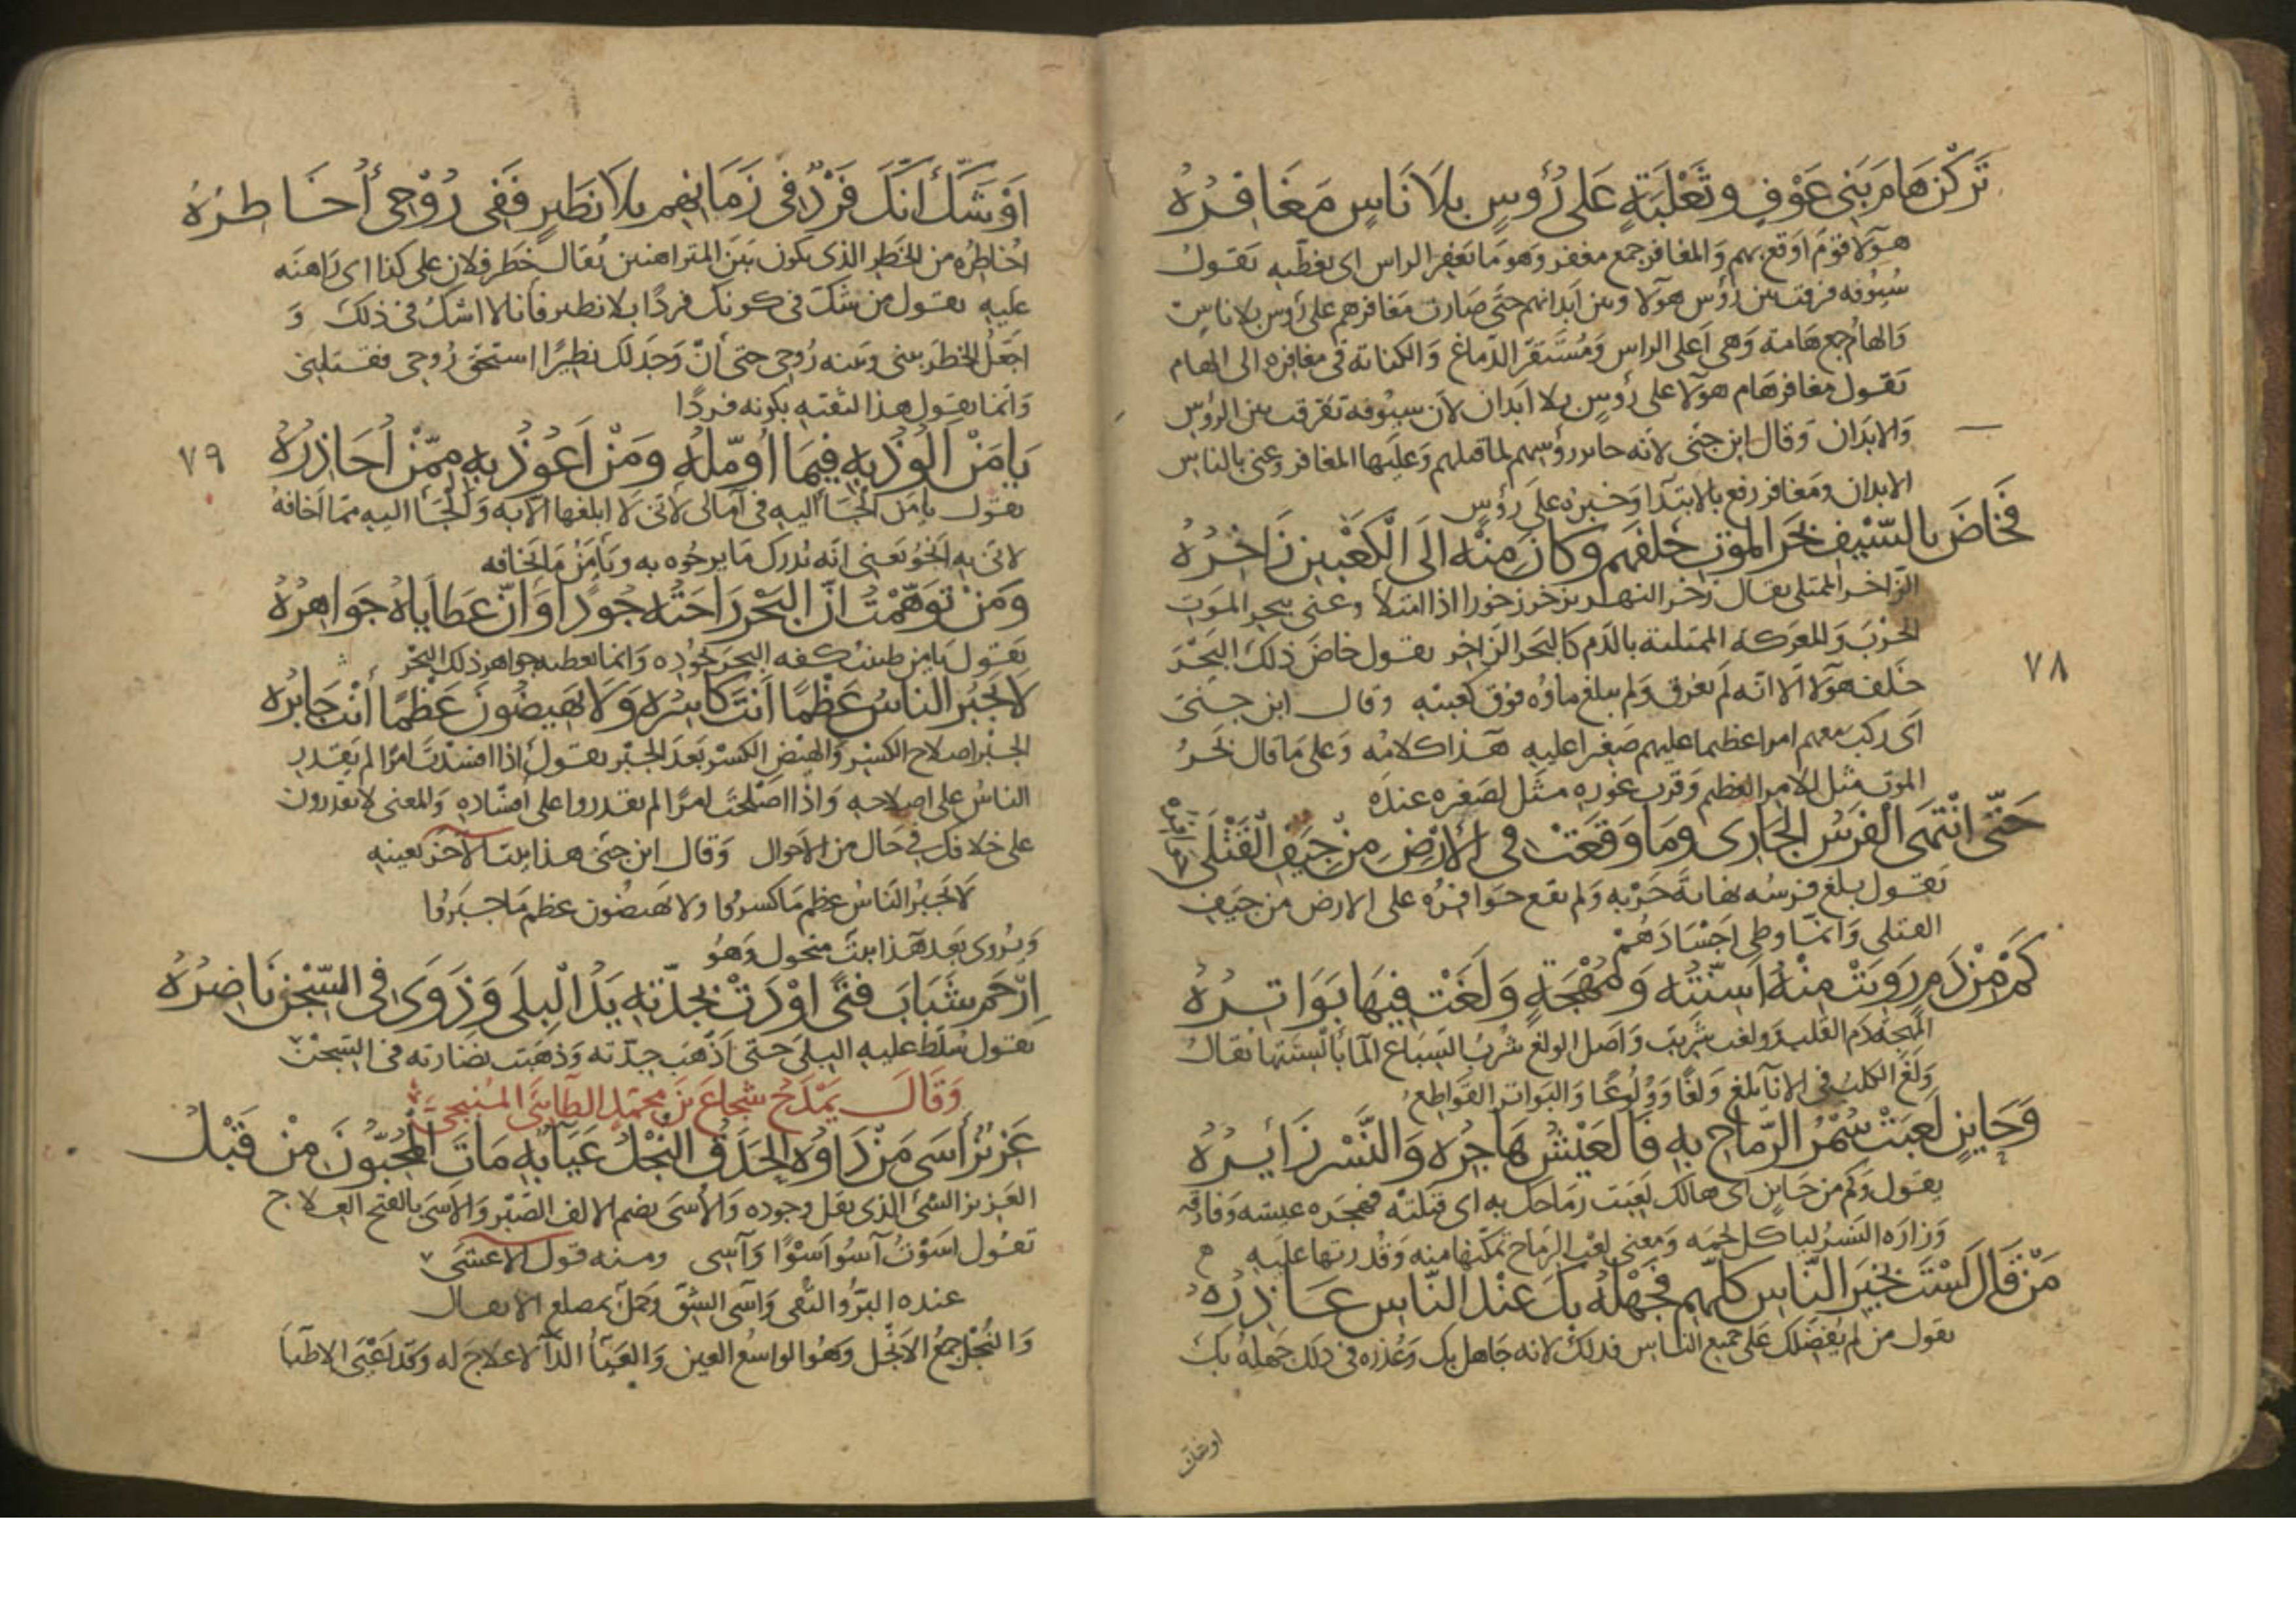 تَرَكْنَ هَامَ بَنِي عَوْفٍ وثَعْلَبَةٍ عَلى رُؤُوسٍ بِلَا نَاسٍ مَغَافِرُهُ
هؤلا قوم اوقع بهم والمغافر جمع مغفر وهو ما يغفر الراس اى يغطّيه يقول
سيوفه فرقت بين رؤس هولا وبين ابدانهم حتى صارت مغافرهم على رؤس بلا ناس
والهام جمع هامة وهى اعلى الراس ومستقر الدماغ والكناية فى مغافره الى الهام
يقول مغافر هام هولا على رؤس بلا ابدان لان سيوفه تفرقت بين الرؤس
والابدان وقال ابن جنى لانه جا بروؤسهم لما قتلهم وعليها المغافر وعنى بالناس
الابدان ومغافر رفع بالابتدا وخبره على رؤس
فَخَاضَ بالسَّيْفِ بَحْرَ المَوْتِ خَلْفَهُم وكَانَ مِنْهُ الَى الكَعْبَيْنِ زَاخِرُهُ
الزاخر الممتلى يقال زخر النهر يزخر زخورا اذا امتلأ وعنى ببحر الموت
الحرب والمعركة الممتلية بالدم كالبحر الزاخر يقول خاض ذلك البحر
٧٨
خلف هولا الا انه لم يغرق ولم يبلغ ماؤه فوق كعبيه وقال ابن جنى
اى ركب معهم امرا عظيما عليهم صغيرا عليه هذا كلامه وعلى ما قال بحر
الموت مثل للامر العظيم وقرب غوره مثل لصغره عنده
حَتَّى انْتَهَى الفَرَسُ الجَارِى ومَا وَقَعَتْ فى الأَرْضِ مِنْ جِيَفِ القَتْلَى حوافره
يقول بلغ فرسه نهاية جريه ولم يقع حوافره على الارض من جيف
القتلى وانما وطى اجسادهم
كَمْ مِنْ دَمٍ رَوِيَتْ مِنْهُ أَسِنَّتُه وَمُهْجَةٍ وَلَغَتْ فِيهَا بَوَاتِرُهُ
المهجة دم القلب وولغت شربت واصل الولغ شرب السباع الما بالسنتها يقال
ولغ الكلب فى الانا يلغ ولغا وولوغا والبواتر القواطع
وَحَايِنٍ لَعِبَتْ سُمْرُ الرِّمَاحِ بِهِ فَالعَيْشُ هَاجِرُهُ وَالنَّسْرُ زَائِرُهُ
يقول وكم من حاين اى هالك لعبت رماحك به اى قتلته فهجره عيشه وفارقه
وزاره النسر لياكل لحمه ومعنى لعب الرماح تمكنها منه وقدرتها عليه
مَنْ قَالَ لَسْتَ بِخَيْرِ النَّاسِ كلِّهِم فَجَهْلُهُ بِكَ عِنْدَ النَّاسِ عَاذِرُهُ
يقول من لم يفضلك على جميع الناس فذلك لانه جاهل بك وعذره فى ذلك جهله بك
اوشك
اوْ شَكَّ أنَّكَ فَرْدٌ فى زَمَانِهِم بلَا نَظِيرٍ فَفِى رُوْحِى أُخَاطِرُهُ
اخاطره من الخطر الذى يكون بين المتراهنين يقال خطر فلان على كذا اى راهنه
عليه يقول من شك فى كونك فردا بلا نظير فانا لا اشك فى ذلك و
اجعل الخطر بينى وبينه روحى حتى ان وجد لك نظيرا استحق روحى فقتلنى
وانما يقول هذا لثقته بكونه فردا
يَا مَنْ أَلُوذُ بِهِ فِيمَا أُؤَمِّلُهُ ومَنْ أَعُوذُ بِهِ مِمَّنْ أُحَاذِرُهُ
٧٩
يقول يا من الجأ اليه فى آمالى لانى لا ابلغها الا به والجأ اليه مما اخافه
لانى به انجو يعنى انه يدرك ما يرجوه به ويامن ما يخافه
ومَنْ تَوَهَّمْتُ انَّ البَحْرَ رَاحَتُه جُودًا وَانَّ عَطَايَاهُ جَوَاهِرُهُ
يقول يا من ظننت كفه البحر لجوده وانما يعطيه جواهر ذلك البحر
لا يَجْبُرُ النَّاسُ عَظْمًا أَنْتَ كَاسِرُهُ وَلَا يَهِيضُونَ عَظْمًا أَنْتَ جَابِرُه
الجبر اصلاح الكسر والهيض الكسر بعد الجبر يقول اذا افسدت امرا لم يقدر
الناس على اصلاحه واذا اصلحت امرا لم يقدروا على افساده والمعنى لا يقدرون
على خلافك فى حال من الاحوال وقال ابن جنى هذا بيت الآخر بعينه
لا يجبر الناس عظم ما كسروا ولا يهيضون عظم ما جبروا
ويروى بعد هذا بيت منحول وهو
اِرْحَمْ شَبَابَ فَتًى اوْدَتْ بجِدَّتِهِ يَدُ الْبِلَى وَذَوَى فى السِّجْنِ نَاضِرُهُ
يقول سلط عليه البلى حتى اذهب جدّته وذهبت نضارته فى السجن
وَقَالَ يَمْدَحُ شُجَاعَ بنَ محمّدٍ الطّائىَّ المنبجى
عَزِيزُ أَسَى مَنْ دَاؤُهُ الحَدَقُ النُّجْلُ عَيَاءٌ بِهِ مَاتَ المُحِبُّونَ مِنْ قَبْلُ
العزيز الشئ الذى يقل وجوده والأُسى بضم الالف الصبر والاسى بالفتح العلاج
تقول اسوت آسو اسوا وآسى ومنه قول الاعشى
عنده البرّ والتقى وآسى الشق وحمل بمصلع الاثقال
والنجل جمع الانجل وهو الواسع العين والعيا الدآ لا علاج له وقد اعيى الاطبا